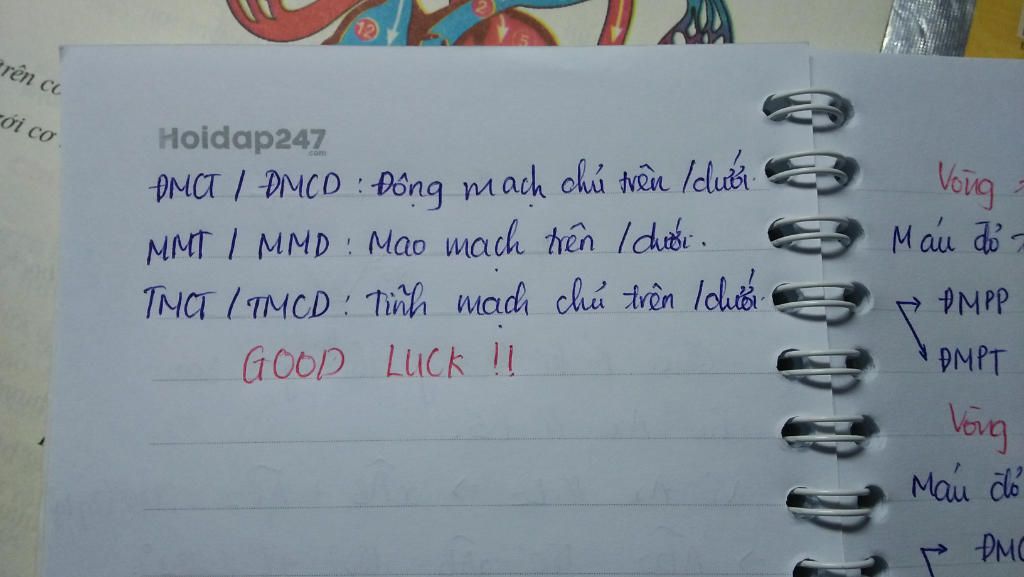 12
2
5
trên cơ
ưới cơ
Hoidap247
.com
ĐMCT / ĐMCD : Động mạch chủ trên / dưới.
MMT / MMD : Mao mạch trên / dưới.
TMCT / TMCD : Tĩnh mạch chủ trên / dưới.
GOOD LUCK !!
Vòng
Máu đỏ
ĐMPP
ĐMPT
Vòng
Máu đỏ